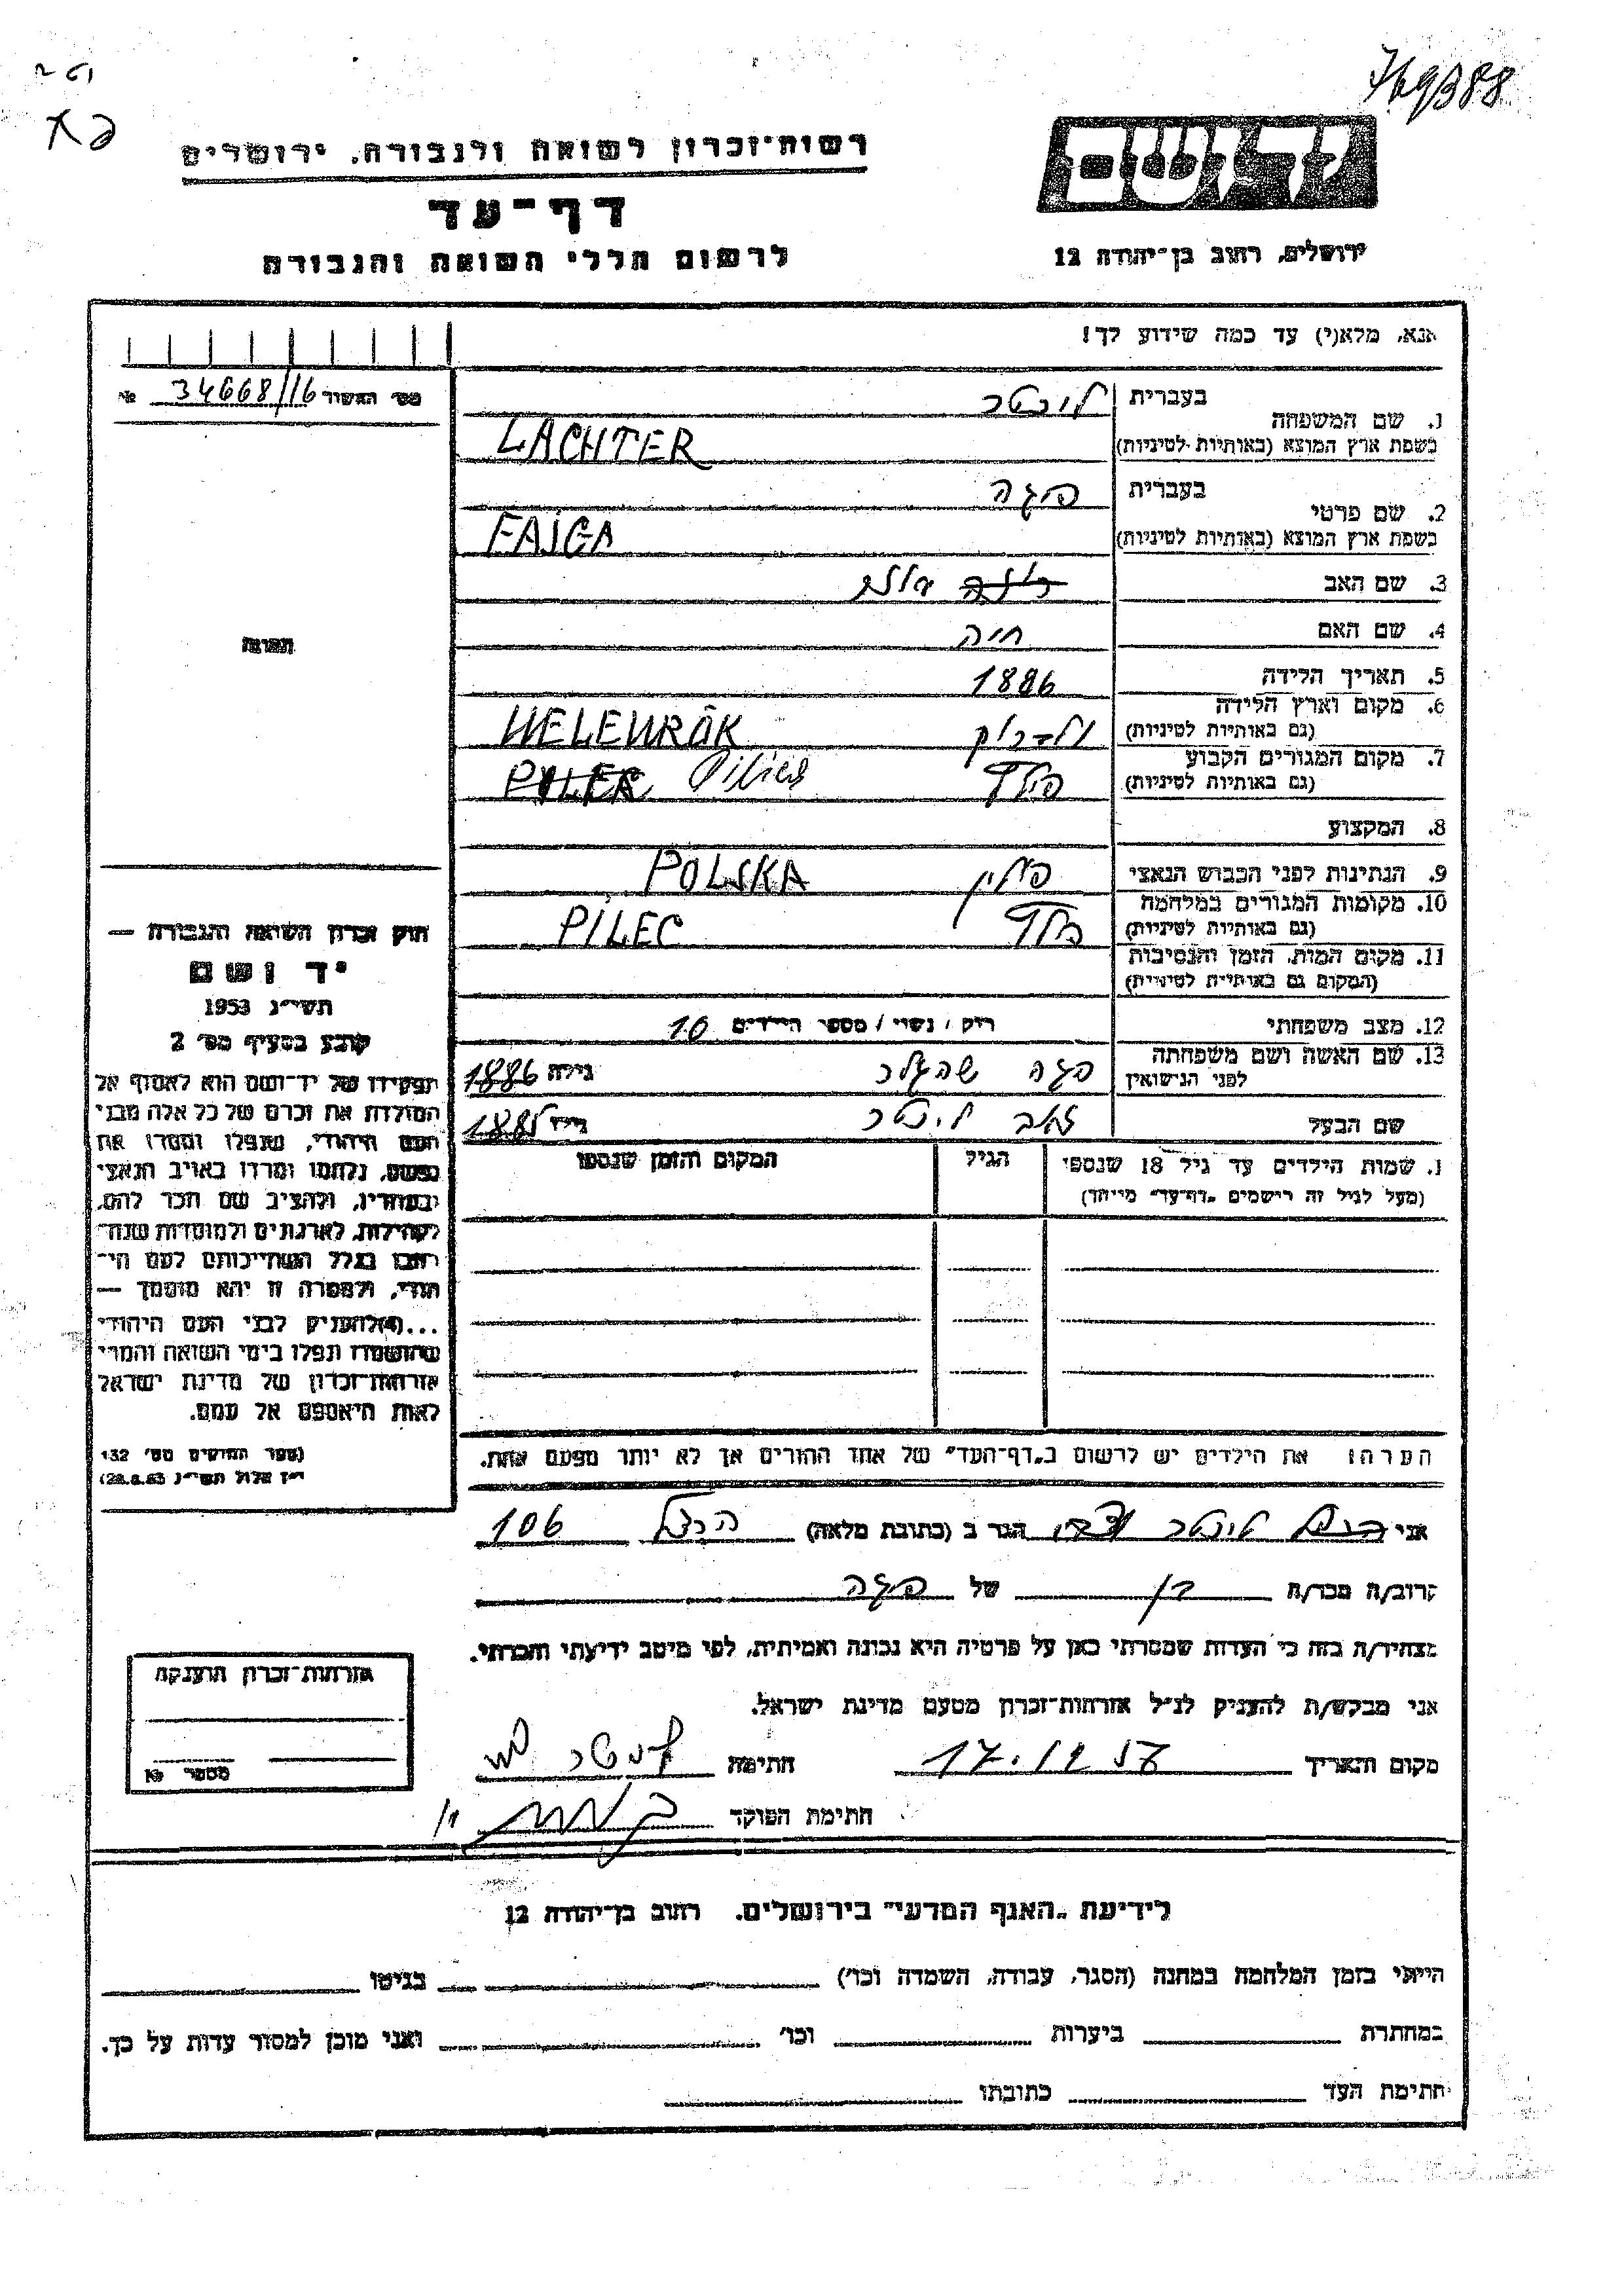 769388
רשות־זכרון לשואה ולגבורה, ירושלים
דף־עד
לרשום חללי השואה והגבורה
יד ושם
ירושלים, רחוב בן־יהודה 12
אנא, מלא(י) עד כמה שידוע לך!
מס׳ האשור 34668/16 №
תמונה
1. שם המשפחה
בעברית לוכטר
בשפת ארץ המוצא (באותיות לטיניות) LACHTER
2. שם פרטי
בעברית פיגה
בשפת ארץ המוצא (באותיות לטיניות) FAJGA
3. שם האב
4. שם האם חיה
5. תאריך הלידה 1886
6. מקום וארץ הלידה
(גם באותיות לטיניות)
7. מקום המגורים הקבוע
(גם באותיות לטיניות) פילץ
8. המקצוע
9. הנתינות לפני הכבוש הנאצי פולין POLSKA
10. מקומות המגורים במלחמה
(גם באותיות לטיניות) פילץ PILEC
11. מקום המות, הזמן והנסיבות
(המקום גם באותיות לטיניות)
12. מצב משפחתי רוק / נשוי / מספר הילדים 10
13. שם האשה ושם משפחתה
לפני הנישואין פיגה גילה 1886
שם הבעל זאב לוכטר גילו
1. שמות הילדים עד גיל 18 שנספו הגיל המקום והזמן שנספו
(מעל לגיל זה רישמים „דף־עד״ מיוחד)
הערה: את הילדים יש לרשום ב„דף־העד״ של אחד ההורים אך לא יותר מפעם אחת.
חוק זכרון השואה והגבורה —
יד ושם
תשי״ג 1953
קובע בסעיף מס׳ 2
תפקידו של יד־ושם הוא לאסוף אל
המולדת את זכרם של כל אלה מבני
העם היהודי, שנפלו ומסרו את
נפשם, נלחמו ומרדו באויב הנאצי
ובעוזריו, ולהציב שם וזכר להם,
לקהילות, לארגונים ולמוסדות שנח־
רבו בגלל השתייכותם לעם הי־
הודי, ולמטרה זו יהא מוסמך —
...(4)להעניק לבני העם היהודי
שהושמדו ונפלו בימי השואה והמרי
אזרחות־זכרון של מדינת ישראל
לאות היאספם אל עמם.
(ספר החוקים מס׳ 132
י״ז אלול תשי״ג 28.8.53)
אני לוכטר הגר ב (כתובת מלאה) הרצל 106
קרוב/ה מכר/ה בן של פיגה
מצהיר/ה בזה כי העדות שמסרתי כאן על פרטיה היא נכונה ואמיתית, לפי מיטב ידיעתי והכרתי.
אני מבקש/ת להעניק לנ״ל אזרחות־זכרון מטעם מדינת ישראל.
מקום ותאריך 17.12.57 חתימה לוכטר
חתימת הפוקד
אזרחות־זכרון הוענקה
מספר №
לידיעת „האגף המדעי״ בירושלים, רחוב בן־יהודה 12
הייתי בזמן המלחמה במחנה (הסגר, עבודה, השמדה וכו׳) בגיטו
במחתרת ביערות וכו׳ ואני מוכן למסור עדות על כך.
חתימת העד כתובתו